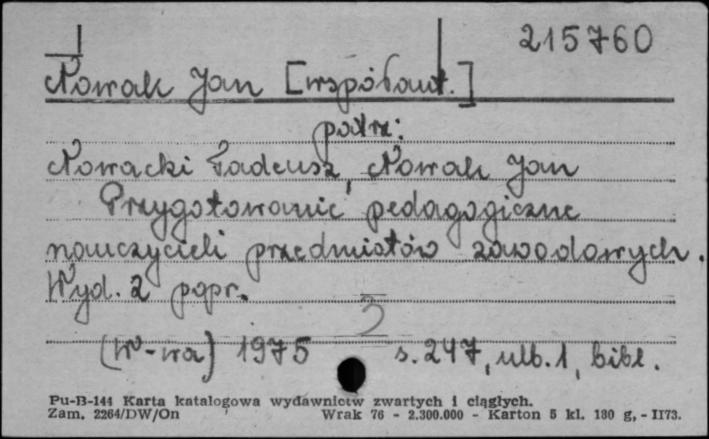 215760
Nowak Jan [współaut.]
patrz:
Nowacki Tadeusz, Nowak Jan
Przygotowanie pedagogiczne
nauczycieli przedmiotów zawodowych.
Wyd. 2 popr.
(W-wa) 1975 s. 247, ulb. 1, bibl.
Pu-B-144 Karta katalogowa wydawnictw zwartych i ciągłych.
Zam. 2264/DW/On Wrak 76 - 2.300.000 - Karton 5 kl. 180 g, - II73.